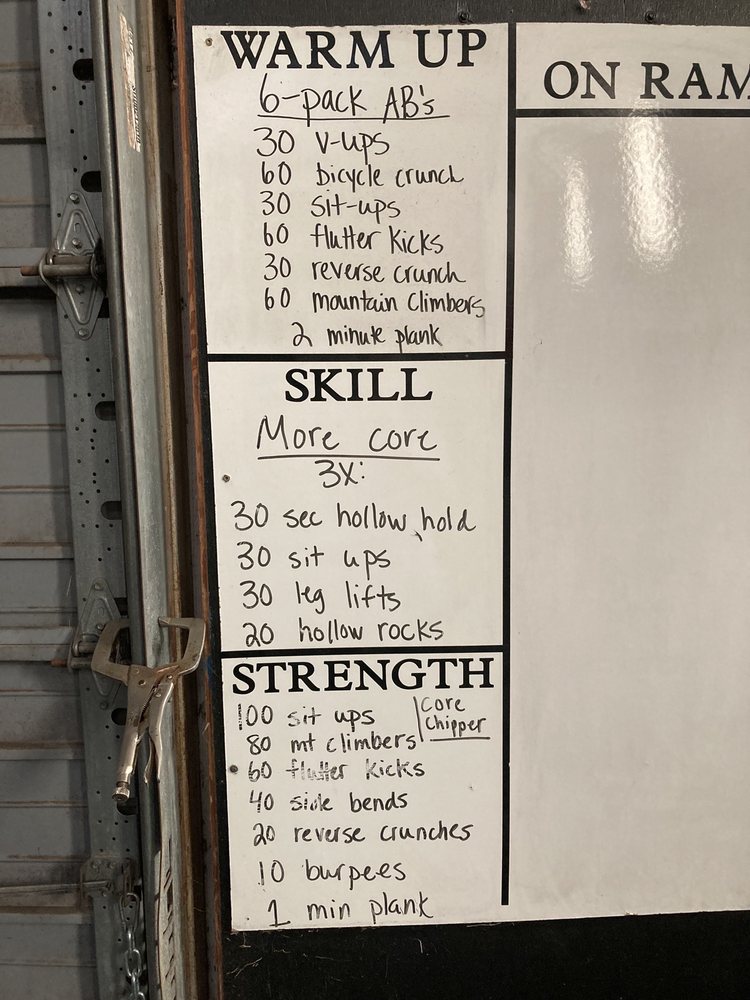 WARM UP
6-pack AB's
30 V-ups
60 bicycle crunch
30 Sit-ups
60 flutter kicks
30 reverse crunch
60 mountain climbers
2 minute plank
SKILL
More core
3X:
30 sec hollow hold
30 sit ups
30 leg lifts
20 hollow rocks
STRENGTH
Core
Chipper
100 sit ups
80 mt climbers
60 flutter kicks
40 side bends
20 reverse crunches
10 burpees
1 min plank
ON RAM